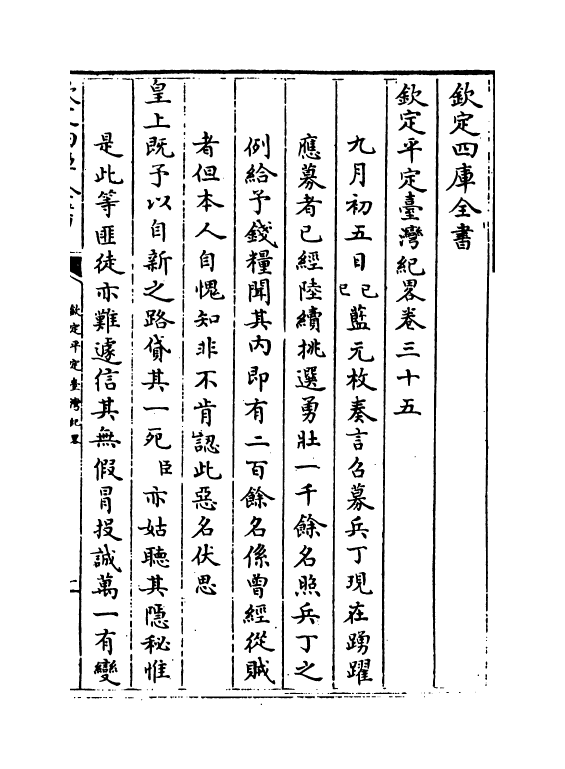 欽定四庫全書
欽定平定臺灣紀畧卷三十五
九月初五日己巳藍元枚奏言召募兵丁現在踴躍
應募者已經陸續挑選勇壯一千餘名照兵丁之
例給予錢糧聞其內即有二百餘名係曾經從賊
者但本人自愧知非不肯認此惡名伏思
皇上既予以自新之路貸其一死臣亦姑聽其隱秘惟
是此等匪徒亦難遽信其無假冐投誠萬一有變
欽定平定臺灣紀畧